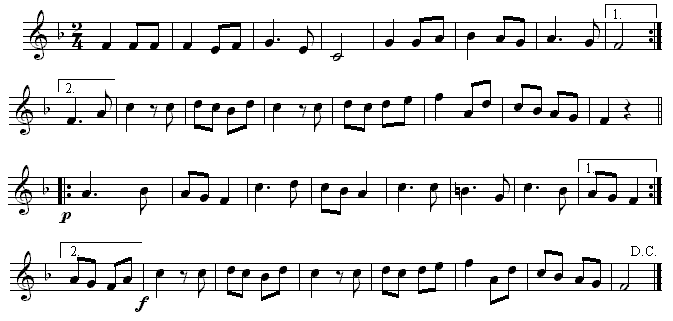 2
4
1.
2.
p
1.
2.
D.C.
f